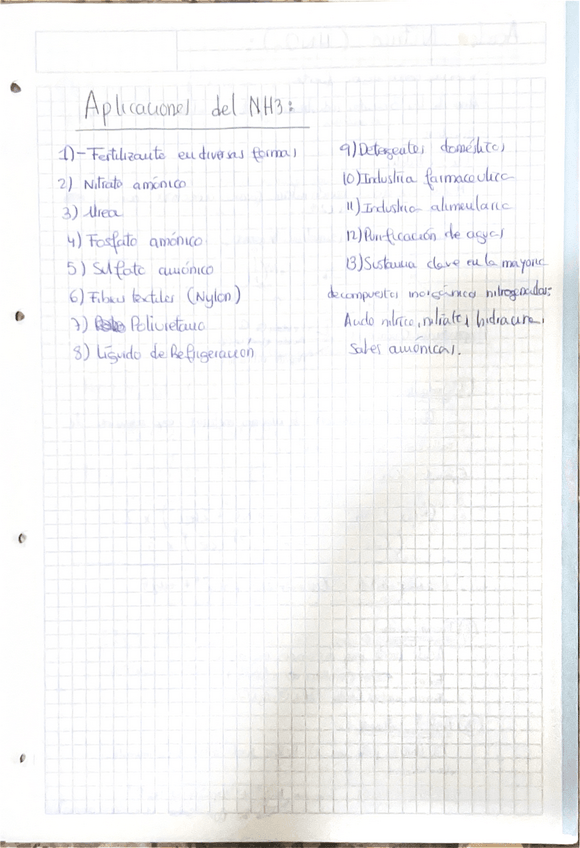 Aplicaciones del NH3:
1)- Fertilizante en diversas formas
2) Nitrato amónico
3) Urea
4) Fosfato amónico
5) Sulfato amónico
6) Fibras textiles (Nylon)
7) Poliuretano
8) Líquido de Refrigeración
9) Detergentes domésticos
10) Industria farmaceutica
11) Industria alimentaria
12) Purificación de aguas
13) Sustancia clave en la mayoria
de compuestos inorgánicos nitrogenados:
Acido nitrico, nitratos, hidracina,
sales amónicas.